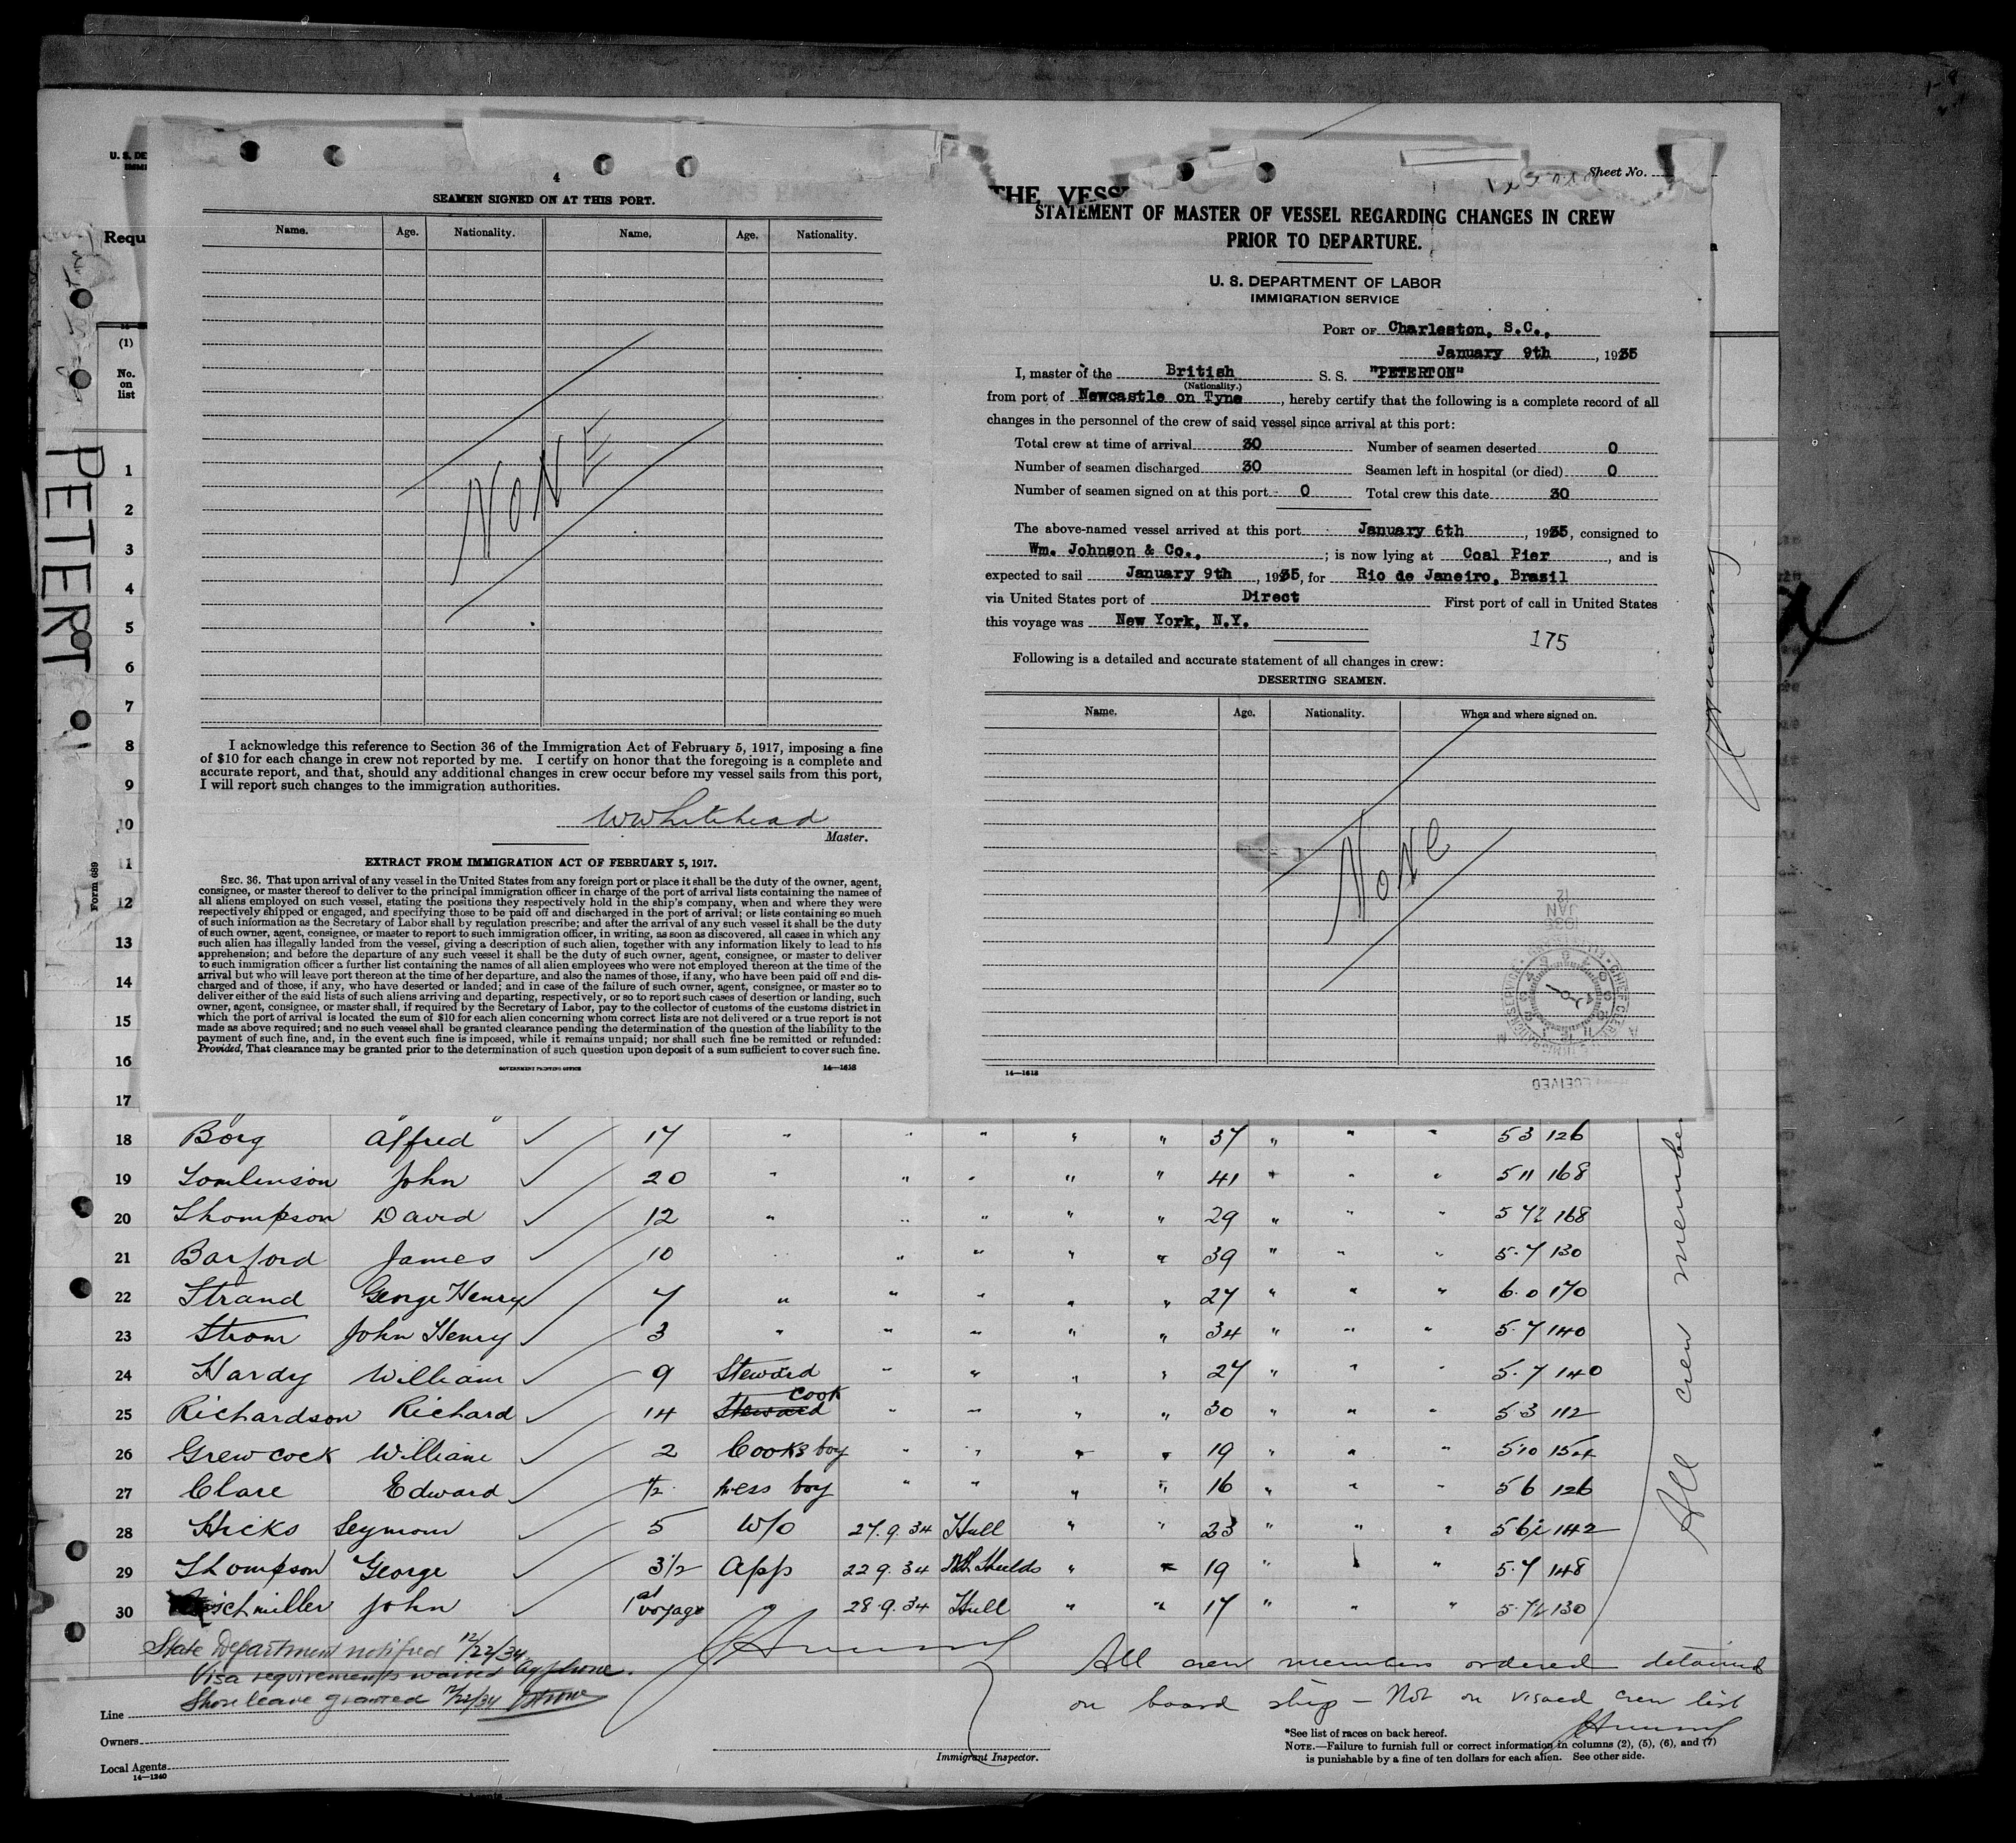 4
SEAMEN SIGNED ON AT THIS PORT.
Name. Age. Nationality. Name. Age. Nationality.
NONE
I acknowledge this reference to Section 36 of the Immigration Act of February 5, 1917, imposing a fine
of $10 for each change in crew not reported by me. I certify on honor that the foregoing is a complete and
accurate report, and that, should any additional changes in crew occur before my vessel sails from this port,
I will report such changes to the immigration authorities.
WWhitehead
Master.
EXTRACT FROM IMMIGRATION ACT OF FEBRUARY 5, 1917.
SEC. 36. That upon arrival of any vessel in the United States from any foreign port or place it shall be the duty of the owner, agent,
consignee, or master thereof to deliver to the principal immigration officer in charge of the port of arrival lists containing the names of
all aliens employed on such vessel, stating the positions they respectively hold in the ship's company, when and where they were
respectively shipped or engaged, and specifying those to be paid off and discharged in the port of arrival; or lists containing so much
of such information as the Secretary of Labor shall by regulation prescribe; and after the arrival of any such vessel it shall be the duty
of such owner, agent, consignee, or master to report to such immigration officer, in writing, as soon as discovered, all cases in which any
such alien has illegally landed from the vessel, giving a description of such alien, together with any information likely to lead to his
apprehension; and before the departure of any such vessel it shall be the duty of such owner, agent, consignee, or master to deliver
to such immigration officer a further list containing the names of all alien employees who were not employed thereon at the time of the
arrival but who will leave port thereon at the time of her departure, and also the names of those, if any, who have been paid off and dis-
charged and of those, if any, who have deserted or landed; and in case of the failure of such owner, agent, consignee, or master so to
deliver either of the said lists of such aliens arriving and departing, respectively, or so to report such cases of desertion or landing, such
owner, agent, consignee, or master shall, if required by the Secretary of Labor, pay to the collector of customs of the customs district in
which the port of arrival is located the sum of $10 for each alien concerning whom correct lists are not delivered or a true report is not
made as above required; and no such vessel shall be granted clearance pending the determination of the question of the liability to the
payment of such fine, and, in the event such fine is imposed, while it remains unpaid; nor shall such fine be remitted or refunded:
Provided, That clearance may be granted prior to the determination of such question upon deposit of a sum sufficient to cover such fine.
GOVERNMENT PRINTING OFFICE 14—1618
Sheet No.
THE VESS
STATEMENT OF MASTER OF VESSEL REGARDING CHANGES IN CREW
PRIOR TO DEPARTURE.
U. S. DEPARTMENT OF LABOR
IMMIGRATION SERVICE
PORT OF Charleston, S.C.,
January 9th, 1935
I, master of the British S. S. "PETERTON"
(Nationality.)
from port of Newcastle on Tyne, hereby certify that the following is a complete record of all
changes in the personnel of the crew of said vessel since arrival at this port:
Total crew at time of arrival 30 Number of seamen deserted 0
Number of seamen discharged 30 Seamen left in hospital (or died) 0
Number of seamen signed on at this port 0 Total crew this date 30
The above-named vessel arrived at this port January 6th, 1935, consigned to
Wm. Johnson & Co., ; is now lying at Coal Pier, and is
expected to sail January 9th, 1935, for Rio de Janeiro, Brasil
via United States port of Direct First port of call in United States
this voyage was New York, N.Y.
175
Following is a detailed and accurate statement of all changes in crew:
DESERTING SEAMEN.
Name. Age. Nationality. When and where signed on.
NONE
1935
JAN
12
14—1618
U. S. DE
Requ
(1)
No.
on
list
PETERT
Form 689
1
2
3
4
5
6
7
8
9
10
11
12
13
14
15
16
17
18 Borg Alfred ✓ 17 " " " " " 37 " " " 5 3 126
19 Tomlinson John ✓ 20 " " " " " 41 " " " 5 11 168
20 Thompson David ✓ 12 " " " " " 29 " " " 5 7½ 168
21 Barford James ✓ 10 " " " " " 39 " " " 5.7 130
22 Strand George Henry ✓ 7 " " " " " 27 " " " 6.0 170
23 Strom John Henry ✓ 3 " " " " " 34 " " " 5.7 140
24 Hardy William ✓ 9 Steward " " " " 27 " " " 5.7 140
25 Richardson Richard ✓ 14 Steward Cook " " " " 30 " " " 5 3 112
26 Grewcock William ✓ 2 Cooks boy " " " " 19 " " " 5 10 154
27 Clare Edward ✓ ½ mess boy " " " " 16 " " " 5 6 126
28 Hicks Seymour ✓ 5 W/O 27.9.34 Hull " " 23 " " " 5 6½ 142
29 Thompson George ✓ 3½ App 22 9.34 Nth Shields " " 19 " " " 5.7 148
30 schmiller John ✓ 1st voyage 28.9.34 Hull " " 17 " " " 5.7½ 130
State Department notified 12/22/34
Visa requirements waived by phone.
Shore leave granted 12/22/34
All crew members ordered detained
on board ship — Not on visaed crew list
All crew member
Line
Owners
Local Agents
14—1240
Immigrant Inspector.
*See list of races on back hereof.
NOTE.—Failure to furnish full or correct information in columns (2), (5), (6), and (7)
is punishable by a fine of ten dollars for each alien. See other side.